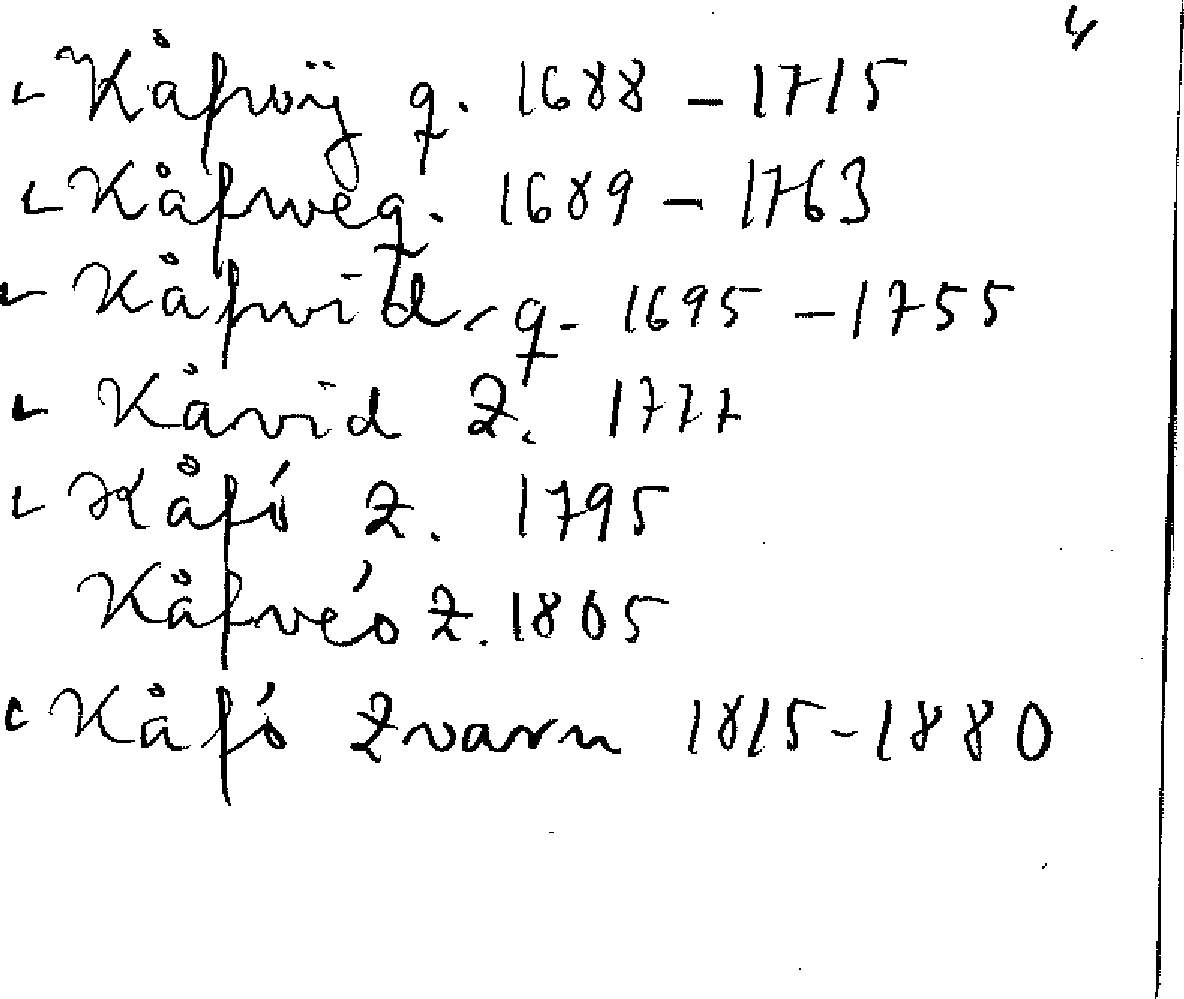 4
Kåfwÿ q. 1688 - 1715
Kåfweq. 1689 - 1763
Kåfwid q. 1695 - 1755
Kåvid Z. 1777
Kåfó Z. 1795
Kåfvéo Z. 1805
Kåfó Zvarn 1815-1880